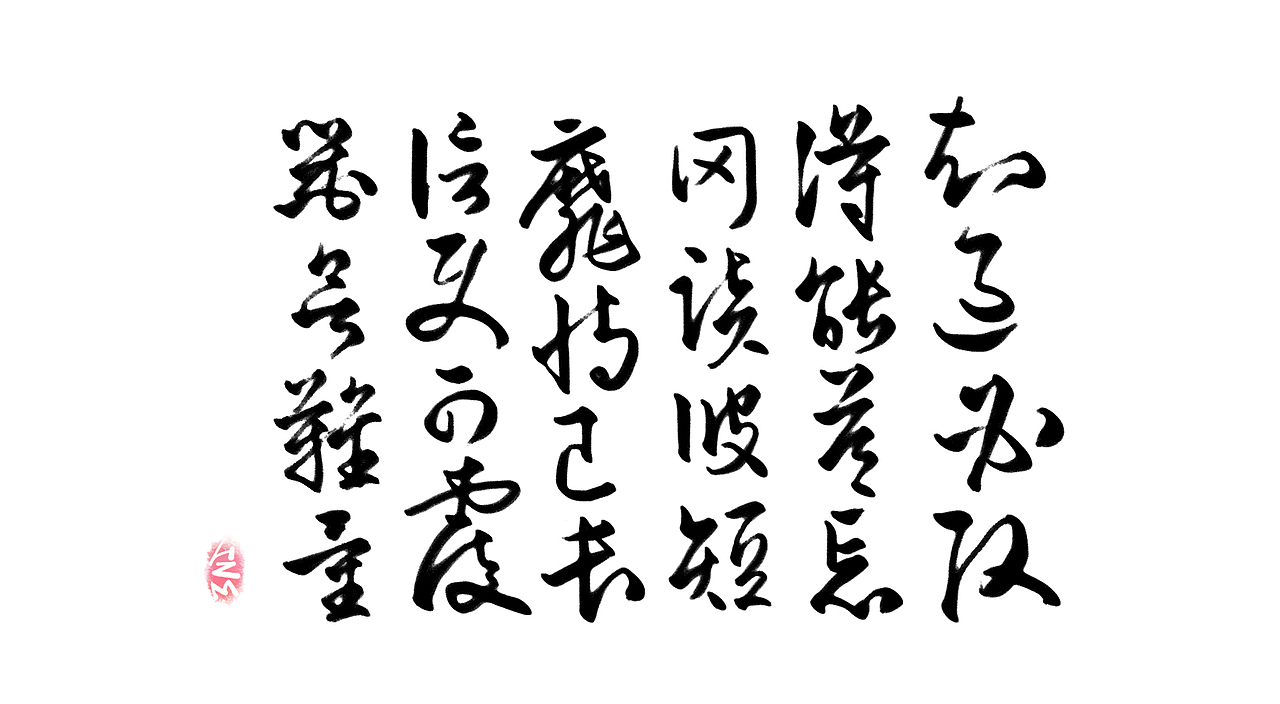 知過必改
得能莫忘
罔談彼短
靡恃己長
信使可覆
器欲難量